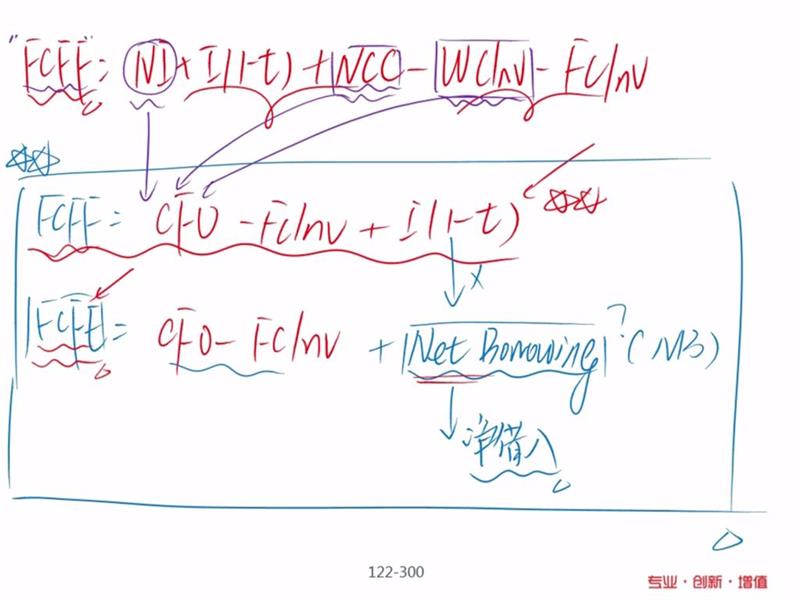 "FCFF" = NI + I(1-t) + NCC - WCInv - FCInv
FCFF = CFO - FCInv + I(1-t)
FCFE = CFO - FCInv + Net Borrowing ? (NB)
净借入
122-300
专业·创新·增值